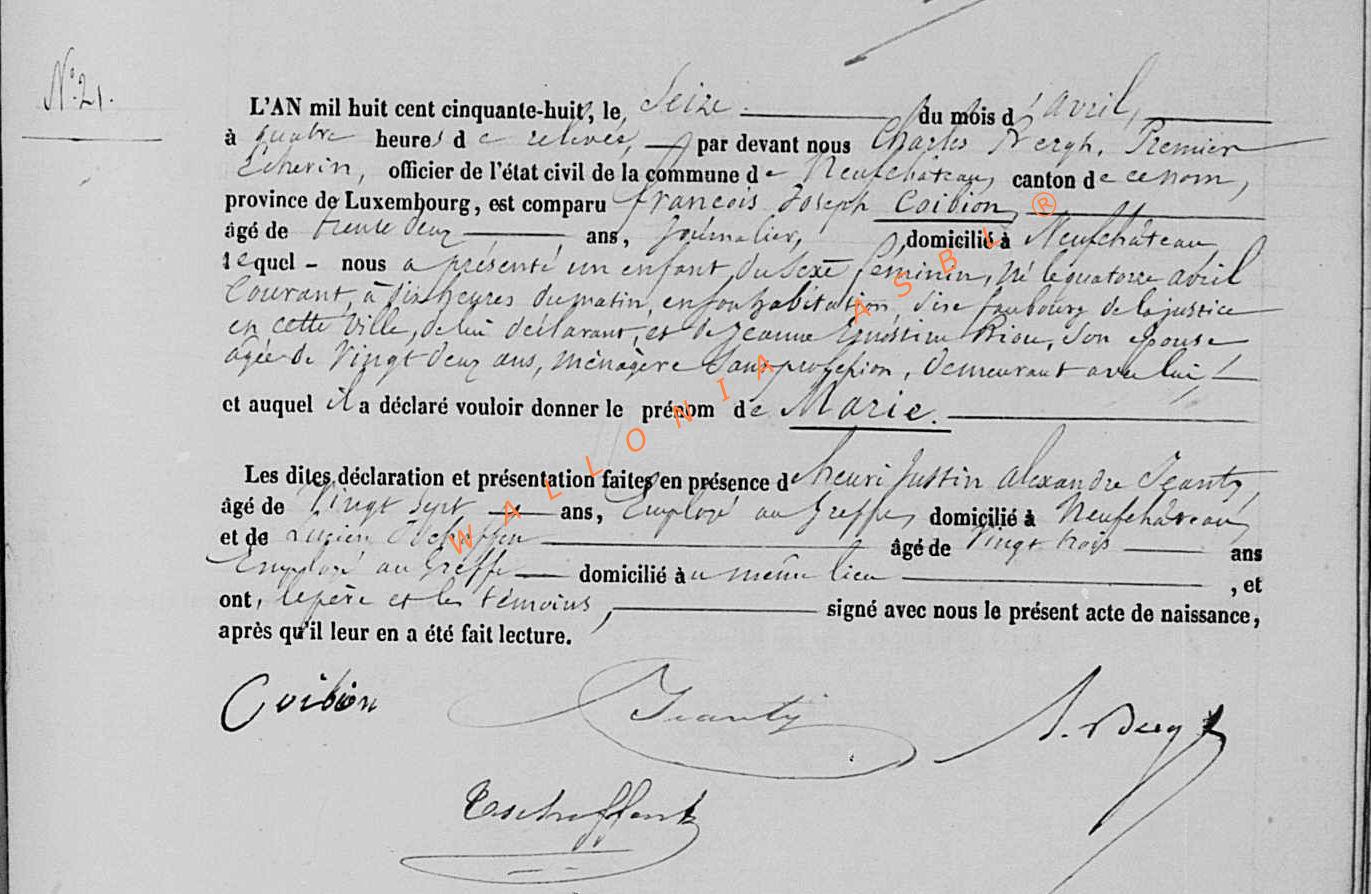 N° 21.
L'AN mil huit cent cinquante-huit, le Seize du mois d'avril,
à quatre heures de relevée, par devant nous Charles Bergh, Premier
Echevin, officier de l'état civil de la commune de Neufchâteau, canton de ce nom,
province de Luxembourg, est comparu françois Joseph Coibion,
âgé de trente deux ans, Journalier, domicilié à Neufchâteau
lequel nous a présenté un enfant du sexe féminin, né le quatorze avril
Courant, à dix heures du matin, en son habitation, sise faubourg de la justice
en cette Ville, de lui déclarant, et de Jeanne son épouse
âgée de Vingt deux ans, ménagère Sans profession, demeurant avec lui,
et auquel il a déclaré vouloir donner le prénom de Marie.
Les dites déclaration et présentation faites en présence d'henri Justin alexandre Jeanty,
âgé de Vingt sept ans, Employé au Greffe, domicilié à Neufchâteau,
et de Lucien Tschoffen âgé de Vingt trois ans
Employé au Greffe domicilié au même lieu, et
ont, le père et les témoins, signé avec nous le présent acte de naissance,
après qu'il leur en a été fait lecture.
Coibion Jeanty
WALLONIA ASBL ®